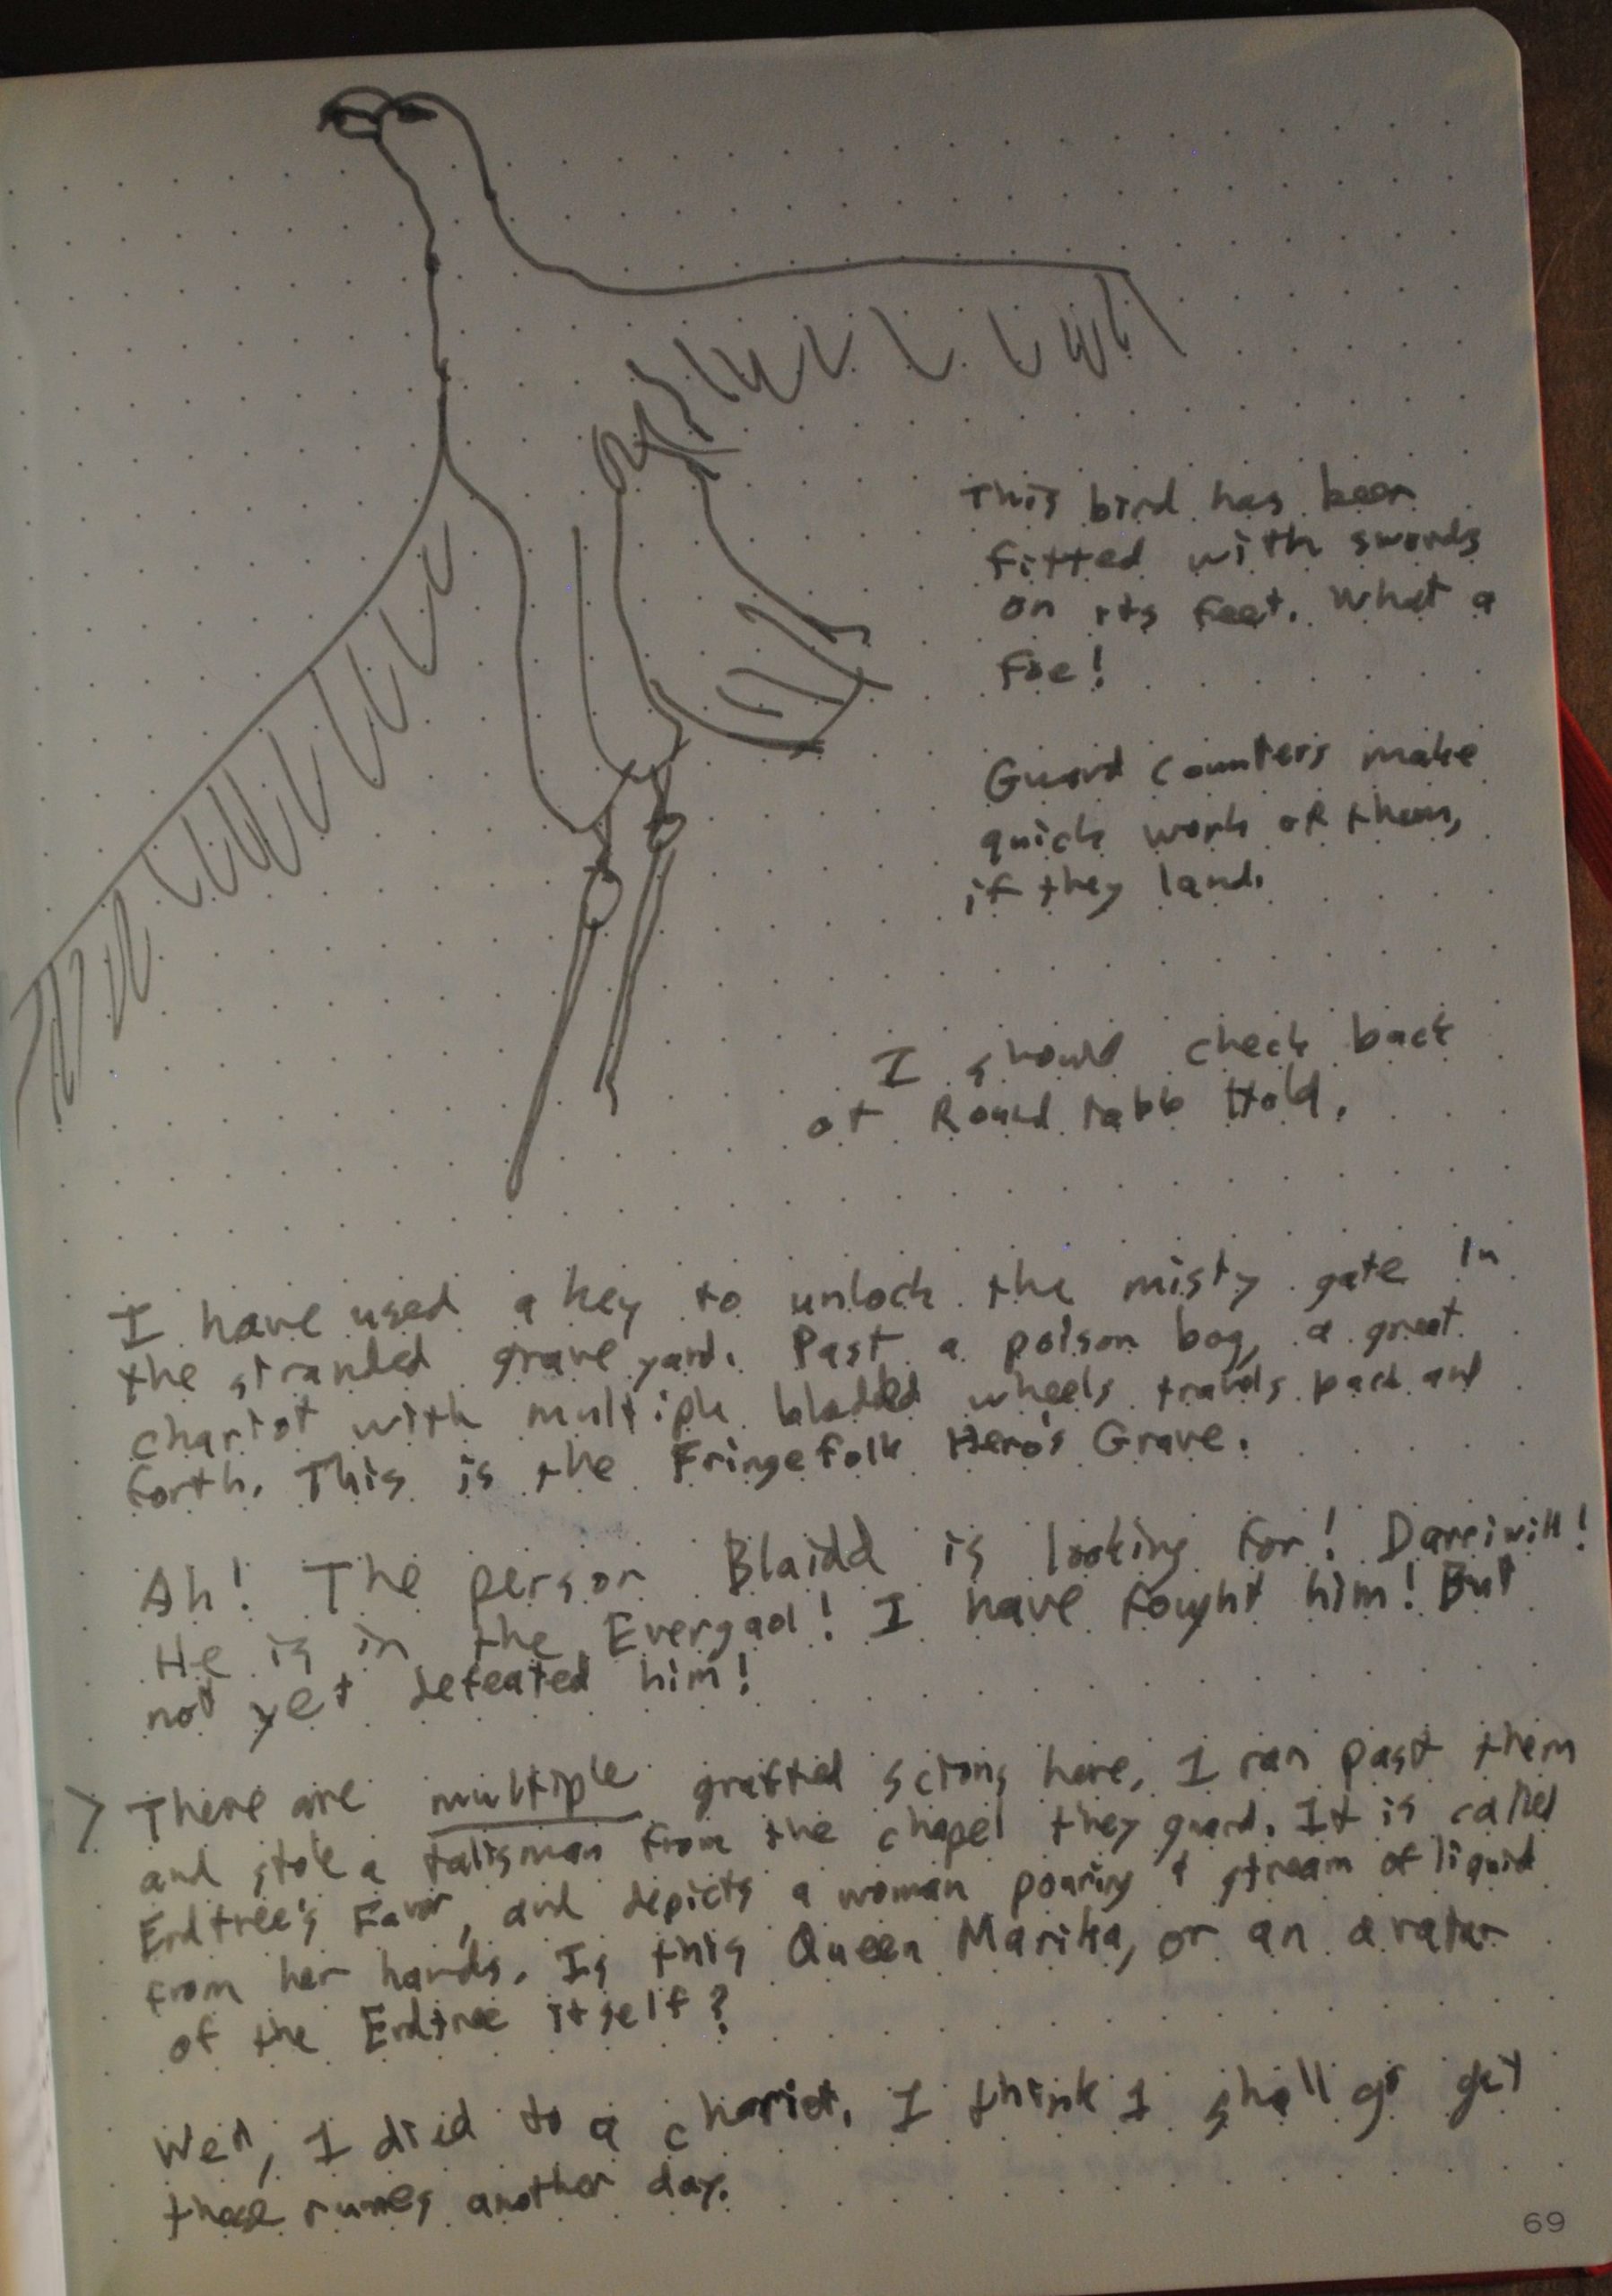 This bird has been
fitted with swords
on its feet. What a
foe!
Guard counters make
quick work of them,
if they land.
I should check back
at Round table Hold.
I have used a key to unlock the misty gate in
the stranded grave yard. Past a poison bog, a great
chariot with multiple bladed wheels travels back and
forth. This is the Fringefolk Hero's Grave.
Ah! The person Blaidd is looking for! Darriwill!
He is in the Evergaol! I have fought him! But
not yet defeated him!
> There are multiple grafted scions here, I ran past them
and stole a talisman from the chapel they guard. It is called
Erdtree's Favor, and depicts a woman pouring a stream of liquid
from her hands. Is this Queen Marika, or an avatar
of the Erdtree itself?
Well, I died to a chariot. I think I shall go get
those runes another day.
69